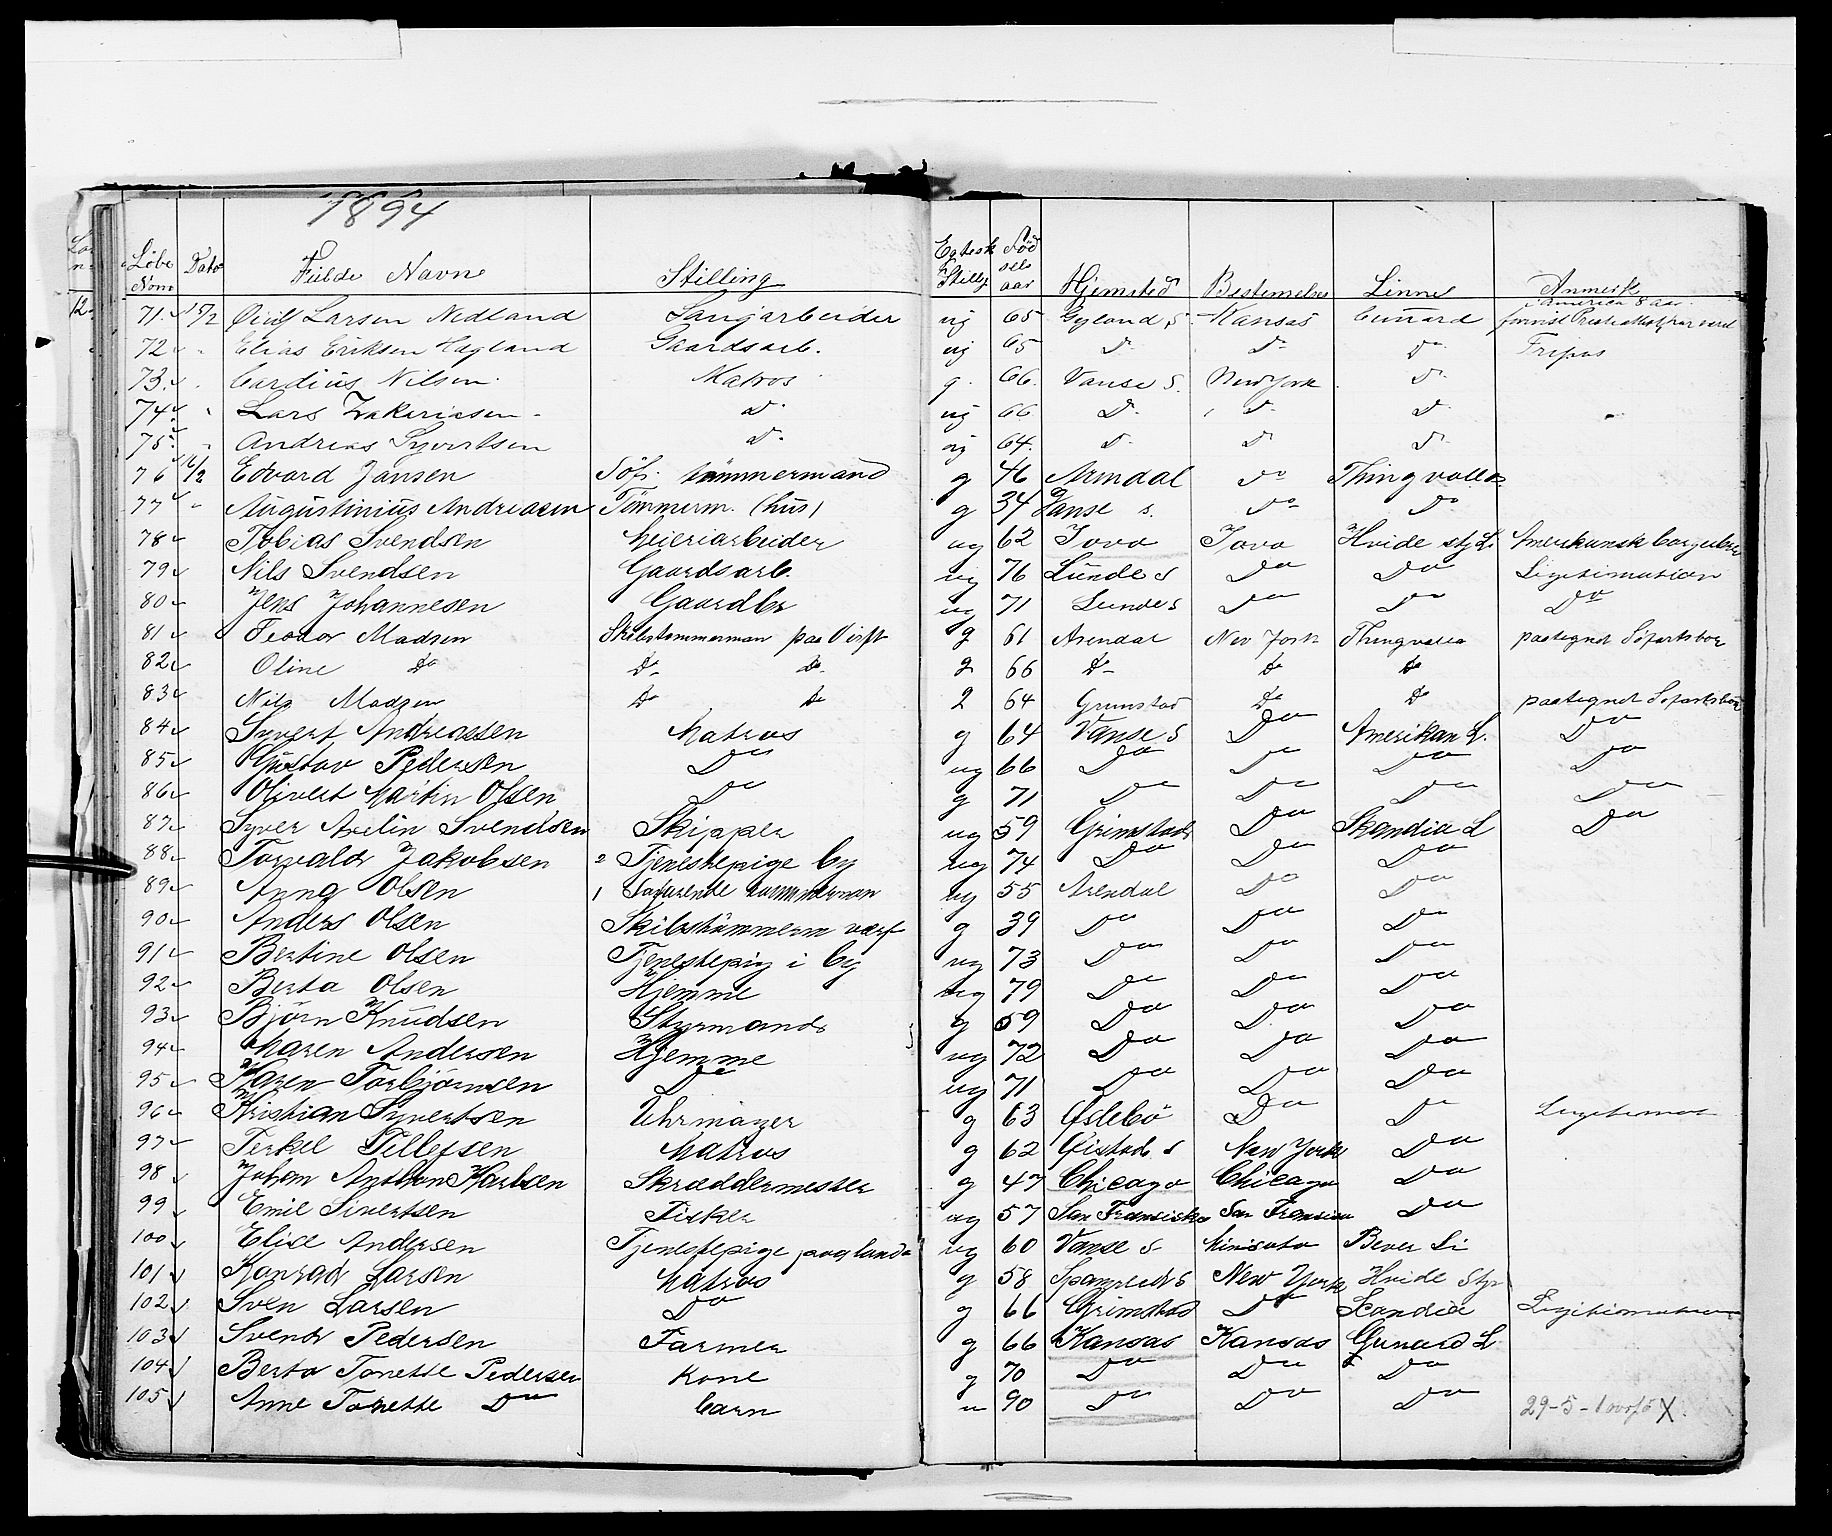 1894
Løbe Nom Dato Fulde Navne Stilling Egtesk Stilly Fødselsaar Hjemsted Bestemelse Linne Anmerk
71 15/2 Larsen Nedland ug 65 Gyland S. Kansas Cunard America 8 aar
72 " Elias Eriksen Hegland Gaardsarb. ug 65 Do Do Do Fripas
73 " Cardius Nilsen Matros g. 66 Vanse S. New York Do
74 " Lars Zakariasen Do ug 66 Do Do Do
75 " Andreas Syvertsen Do ug 64 Do Do Do
76 16/2 Edvard Jansen tømmermand g 46 Arendal Do Thingvalla
77 " Augustinius Andreasen Tømmerm. (hus) g 34 Vanse s. Do Do
78 Tobias Svendsen Meieriarbeider ug 62 Iova Iova Hvide stj L. Amerikansk borgerbrev
79 Nils Svendsen Gaardsarb. ug 76 Lunde s Do Do Legitimation
80 Jens Johannesen Gaardbr ug 71 Lunde s Do Do Do
81 Teodor Madsen Skibstømmerman paa Verft g 61 Arendal Nev York Thingvalla paategnet Søfartsbog
82 Oline Do Do Do g 66 Do Do Do
83 Nils Madsen Do Do g 64 Grimstad Do Do paategnet Søfartsbog
84 Syvert Andreassen Matros g 64 Vanse S Do Amerikan L. Do
85 Gustav Pedersen Do ug 66 Do Do Do Do
86 Olivert Martin Olsen Do g 71 Do Do Do Do
87 Syver Avelin Svendsen Skipper ug 59 Grimstad Do Skandia L Do
88 Torvald Jakobsen 2 Tjenestepige by ug 74 Do Do Do
89 Anna Olsen 1 tømmerman ug 55 Arendal Do Do
90 Anders Olsen Skibstømmerm værf g 39 Do Do Do
91 Bertine Olsen Tjenestepig i by ug 73 Do Do Do
92 Berta Olsen Hjemme ug 79 Do Do Do
93 Bjørn Knudsen Styrmand g 59 Do Do Do
94 Maren Andersen Hjemme ug 72 Do Do Do
95 Karen Torbjørnsen Do ug 71 Do Do Do
96 Kristian Syvertsen Uhrmager g 63 Øslebö Do Do Legitimat
97 Terkel Tellefsen Matros g 62 Øistad s New York Do
98 Johan Anthon Karlsen Skræddermester g 47 Chicago Chicago Do
99 Emil Sivertsen Fisker ug 57 San Fransisko San Do
100 Elise Andersen Tjenestepige paa land ug 60 Vanse s Minisota Bever Li
101 Konrad Larsen Matros g 58 S New York Hvide Stj
102 Sven Larsen Do g 66 Grimstad Do Scandia Legitimation
103 Svend Pedersen Farmer g 66 Kansas Kansas Cunard L
104 Berta Tonette Pedersen Kone g 70 Do Do Do
105 Anne Tonette Do barn u 90 Do Do Do
29-5- X